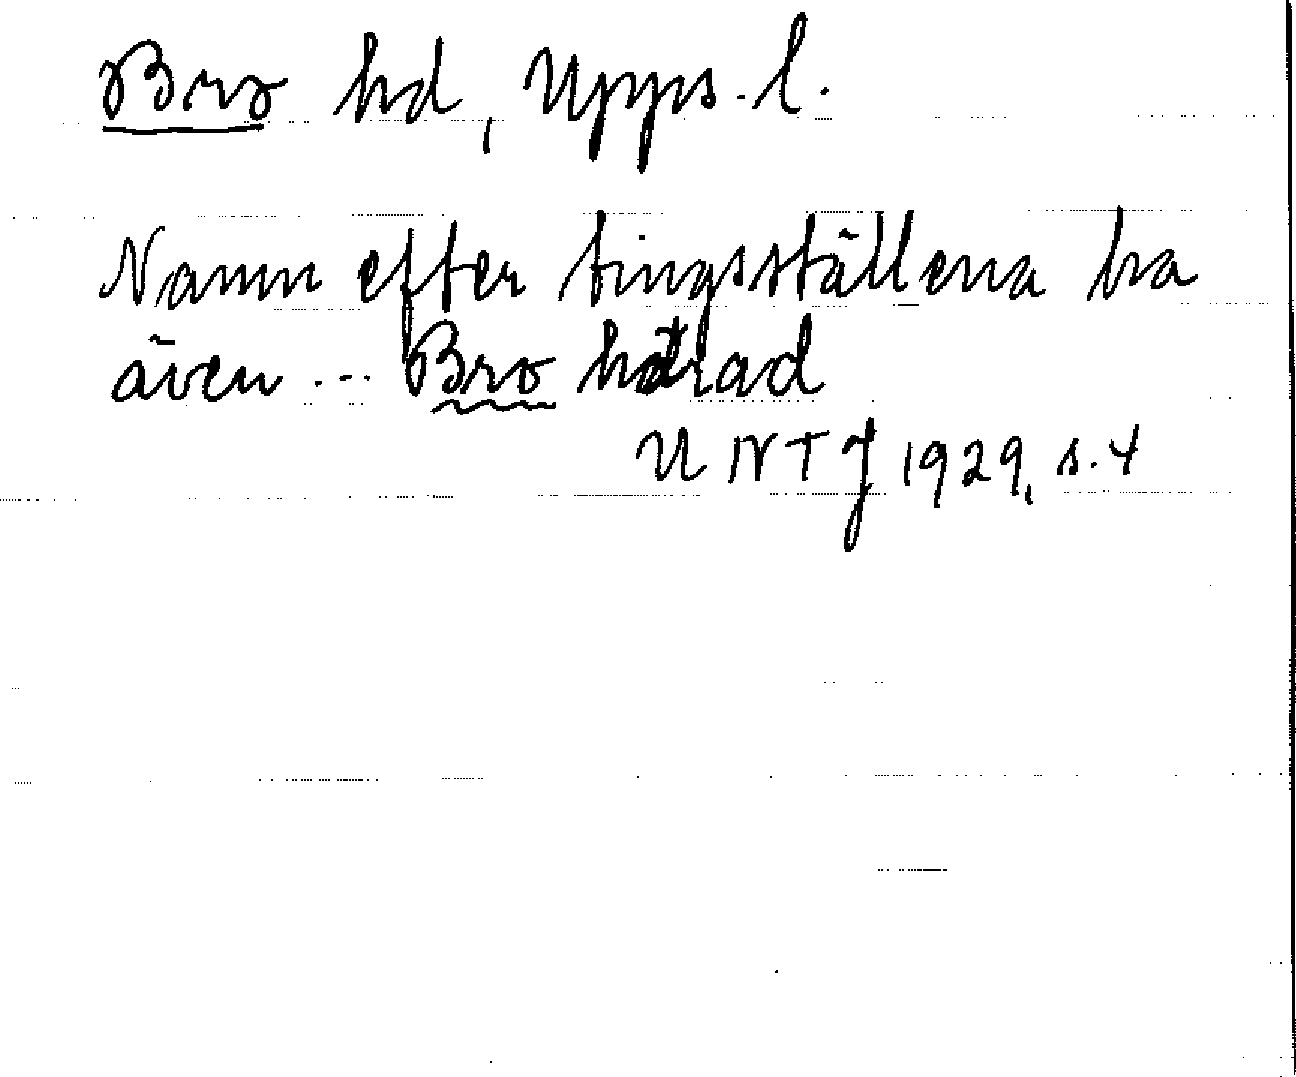 Bro hd, Upps. l.
Namn efter tingsställena ha
även ... Bro härad
UNTJ 1929, s. 4